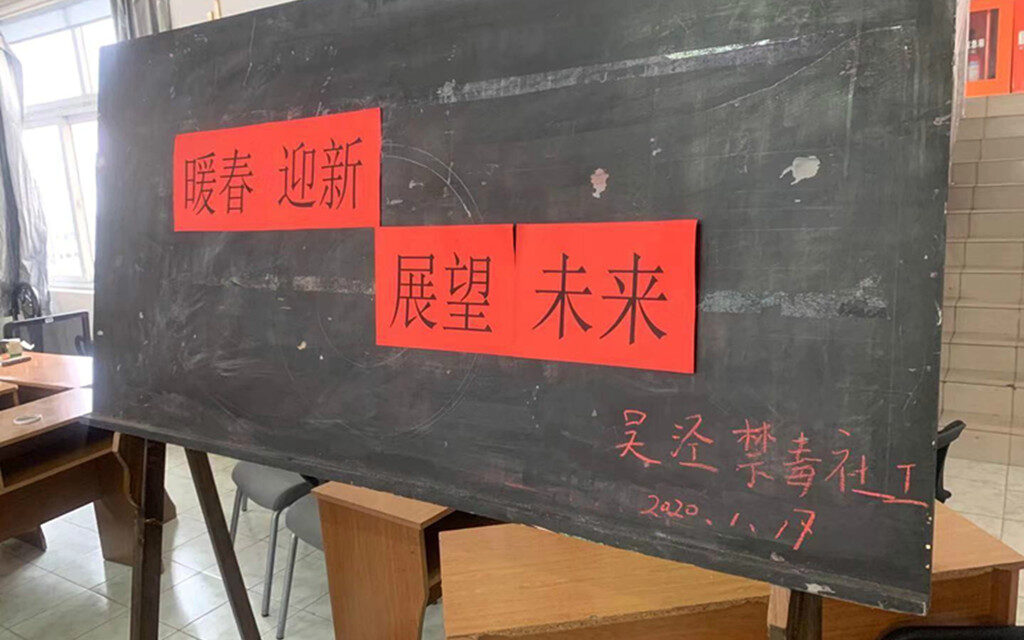 暖春 迎新
展望 未来
吴泾禁毒社工
2020.1.17